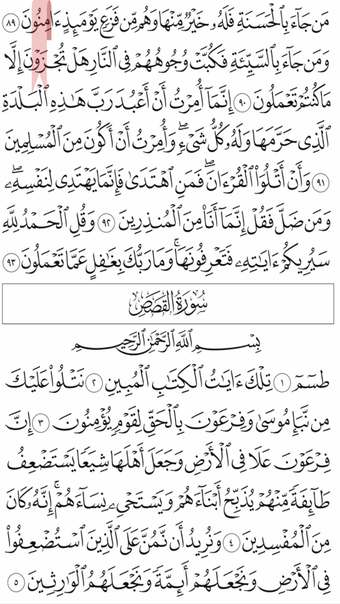 مَن جَآءَ بِٱلۡحَسَنَةِ فَلَهُۥ خَيۡرٞ مِّنۡهَا وَهُم مِّن فَزَعٖ يَوۡمَئِذٍ ءَامِنُونَ ٨٩
وَمَن جَآءَ بِٱلسَّيِّئَةِ فَكُبَّتۡ وُجُوهُهُمۡ فِي ٱلنَّارِ هَلۡ تُجۡزَوۡنَ إِلَّا
مَا كُنتُمۡ تَعۡمَلُونَ ٩٠ إِنَّمَآ أُمِرۡتُ أَنۡ أَعۡبُدَ رَبَّ هَٰذِهِ ٱلۡبَلۡدَةِ
ٱلَّذِي حَرَّمَهَا وَلَهُۥ كُلُّ شَيۡءٖۖ وَأُمِرۡتُ أَنۡ أَكُونَ مِنَ ٱلۡمُسۡلِمِينَ
٩١ وَأَنۡ أَتۡلُوَاْ ٱلۡقُرۡءَانَۖ فَمَنِ ٱهۡتَدَىٰ فَإِنَّمَا يَهۡتَدِي لِنَفۡسِهِۦۖ
وَمَن ضَلَّ فَقُلۡ إِنَّمَآ أَنَا۠ مِنَ ٱلۡمُنذِرِينَ ٩٢ وَقُلِ ٱلۡحَمۡدُ لِلَّهِ
سَيُرِيكُمۡ ءَايَٰتِهِۦ فَتَعۡرِفُونَهَاۚ وَمَا رَبُّكَ بِغَٰفِلٍ عَمَّا تَعۡمَلُونَ ٩٣
سُورَةُ القَصَصِ
بِسۡمِ ٱللَّهِ ٱلرَّحۡمَٰنِ ٱلرَّحِيمِ
طسٓمٓ ١ تِلۡكَ ءَايَٰتُ ٱلۡكِتَٰبِ ٱلۡمُبِينِ ٢ نَتۡلُواْ عَلَيۡكَ
مِن نَّبَإِ مُوسَىٰ وَفِرۡعَوۡنَ بِٱلۡحَقِّ لِقَوۡمٖ يُؤۡمِنُونَ ٣ إِنَّ
فِرۡعَوۡنَ عَلَا فِي ٱلۡأَرۡضِ وَجَعَلَ أَهۡلَهَا شِيَعٗا يَسۡتَضۡعِفُ
طَآئِفَةٗ مِّنۡهُمۡ يُذَبِّحُ أَبۡنَآءَهُمۡ وَيَسۡتَحۡيِۦ نِسَآءَهُمۡۚ إِنَّهُۥ كَانَ
مِنَ ٱلۡمُفۡسِدِينَ ٤ وَنُرِيدُ أَن نَّمُنَّ عَلَى ٱلَّذِينَ ٱسۡتُضۡعِفُواْ
فِي ٱلۡأَرۡضِ وَنَجۡعَلَهُمۡ أَئِمَّةٗ وَنَجۡعَلَهُمُ ٱلۡوَٰرِثِينَ ٥